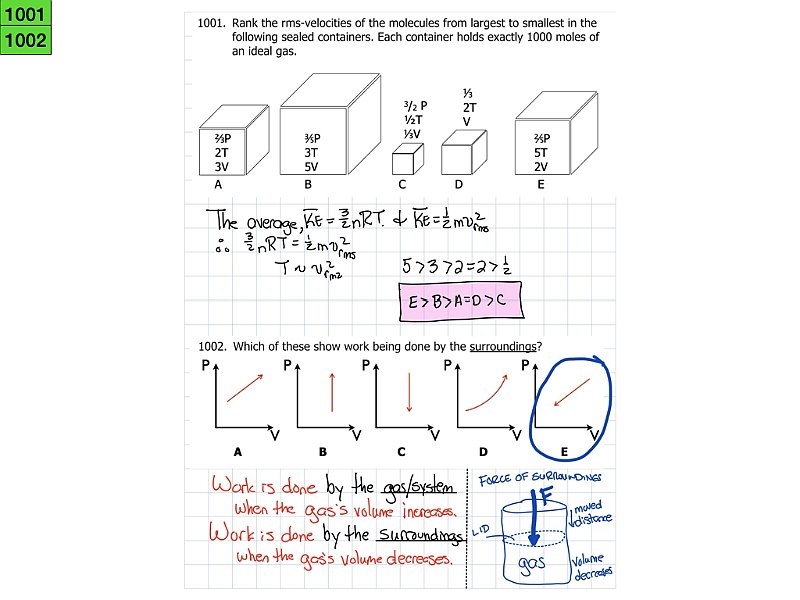 1001
1002
1001. Rank the rms-velocities of the molecules from largest to smallest in the
following sealed containers. Each container holds exactly 1000 moles of
an ideal gas.
⅔P
2T
3V
A
⅗P
3T
5V
B
3/2 P
½T
⅓V
C
⅓
2T
V
D
⅖P
5T
2V
E
The average, K̅E̅ = 3/2 nRT. & K̅E̅ = 1/2 mv²rms
∴ 3/2 nRT = 1/2 mv²rms
T ~ v²rms
5 > 3 > 2 = 2 > 1/2
E > B > A = D > C
1002. Which of these show work being done by the surroundings?
P
V
A
P
V
B
P
V
C
P
V
D
P
V
E
Work is done by the gas/system
when the gas's volume increases.
Work is done by the surroundings
when the gas's volume decreases.
FORCE OF SURROUNDINGS
F
moved
distance
LID
gas
volume
decreases